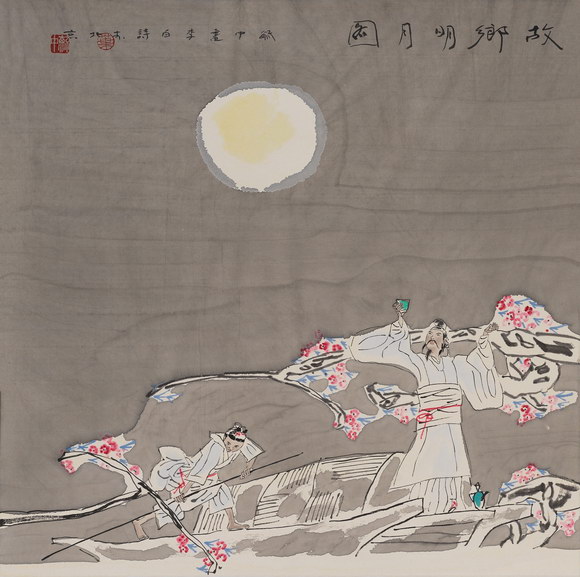 故鄉明月圖
中畫李白詩於北京